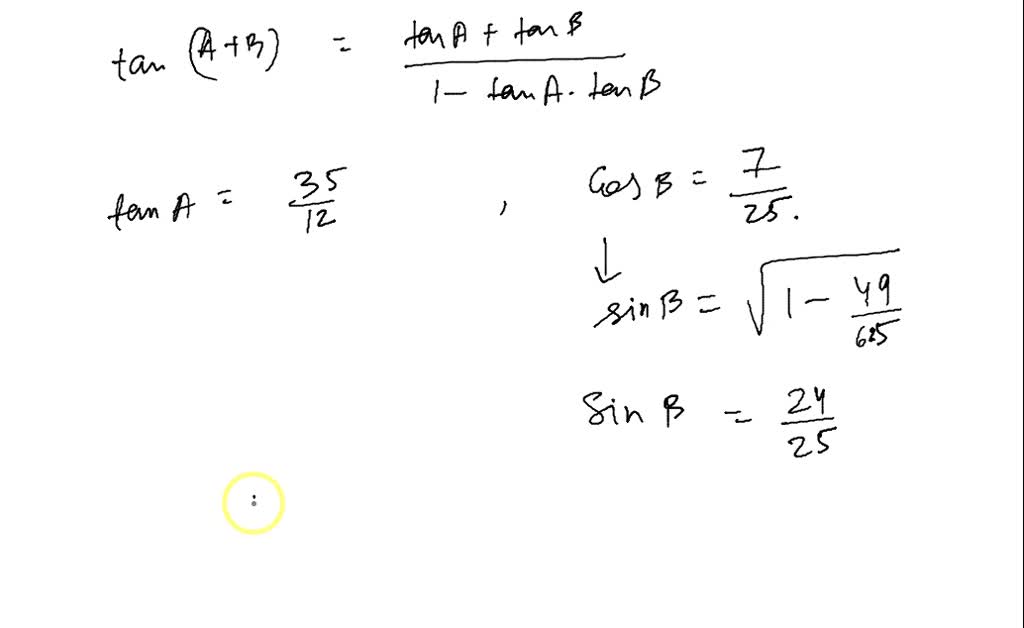 tan (A+B) = (tan A + tan B) / (1 - tan A . tan B)
tan A = 35/12 , Cos B = 7/25.
↓
sin B = √(1 - 49/625)
Sin B = 24/25